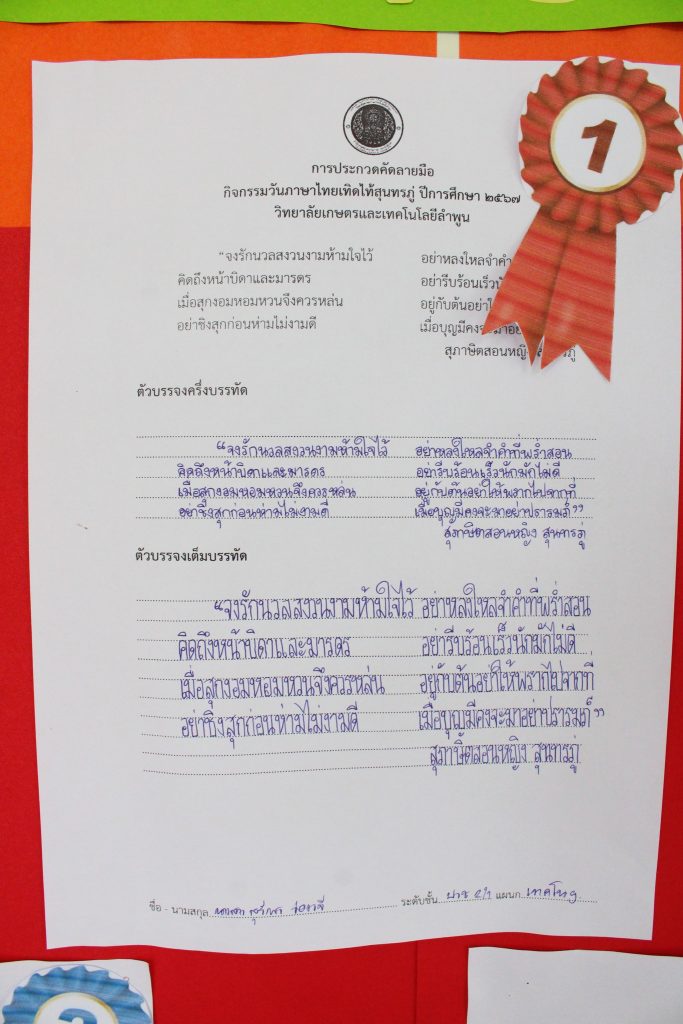 1
การประกวดคัดลายมือ
กิจกรรมวันภาษาไทยเทิดไท้สุนทรภู่ ปีการศึกษา ๒๕๖๗
วิทยาลัยเกษตรและเทคโนโลยีลำพูน
"จงรักนวลสงวนงามห้ามใจไว้ อย่าหลงใหลจำคำ
คิดถึงหน้าบิดาและมารดร อย่ารีบร้อนเร็ว
เมื่อสุกงอมหอมหวนจึงควรหล่น อยู่กับต้นอย่า
อย่าชิงสุกก่อนห่ามไม่งามดี เมื่อบุญมีคง
สุภาษิตสอนหญิง
ตัวบรรจงครึ่งบรรทัด
"จงรักนวลสงวนงามห้ามใจไว้ อย่าหลงใหลจำคำที่พร่ำสอน
คิดถึงหน้าบิดาและมารดร อย่ารีบร้อนเร็วนักมักไม่ดี
เมื่อสุกงอมหอมหวนจึงควรหล่น อยู่กับต้นอย่าให้พรากไปจากที่
อย่าชิงสุกก่อนห่ามไม่งามดี เมื่อบุญมีคงจะมาอย่าปรารมภ์"
สุภาษิตสอนหญิง สุนทรภู่
ตัวบรรจงเต็มบรรทัด
"จงรักนวลสงวนงามห้ามใจไว้ อย่าหลงใหลจำคำที่พร่ำสอน
คิดถึงหน้าบิดาและมารดร อย่ารีบร้อนเร็วนักมักไม่ดี
เมื่อสุกงอมหอมหวนจึงควรหล่น อยู่กับต้นอย่าให้พรากไปจากที่
อย่าชิงสุกก่อนห่ามไม่งามดี เมื่อบุญมีคงจะมาอย่าปรารมภ์"
สุภาษิตสอนหญิง สุนทรภู่
ชื่อ - นามสกุล ระดับชั้น ปวช ๔/๑ แผนก
2